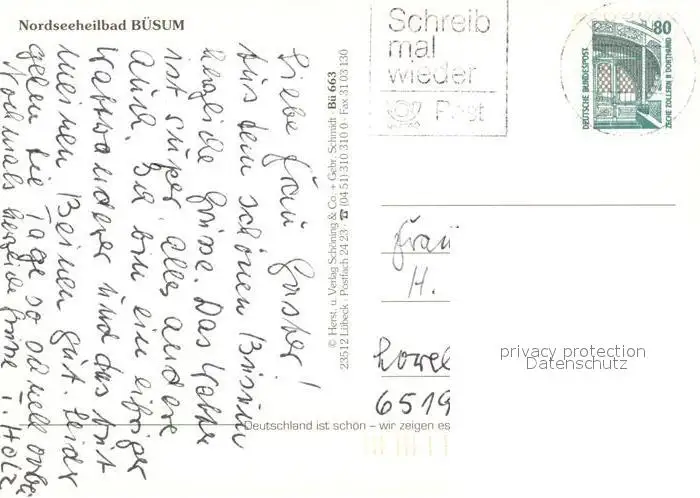 Nordseeheilbad BÜSUM
Liebe Frau Gasber!
Aus dem schönen Büsum
herzliche Grüsse. Das Wetter
ist super alles andere
auch. Ich bin ein eifriger
Wattwanderer und das tut
meinen Beinen gut. Leider
gehen die Tage so schnell vorbei
Nochmals herzliche Grüsse I. Holz
© Herst. u. Verlag Schöning & Co. + Gebr. Schmidt · Bü 663
23512 Lübeck · Postfach 24 23 · ☎ (04 51) 310 310 0 · Fax 31 03 130
Schreib
mal
wieder
Post
80
DEUTSCHE BUNDESPOST
ZECHE ZOLLERN II DORTMUND
Frau
H.
6519
Deutschland ist schön – wir zeigen es
privacy protection
Datenschutz